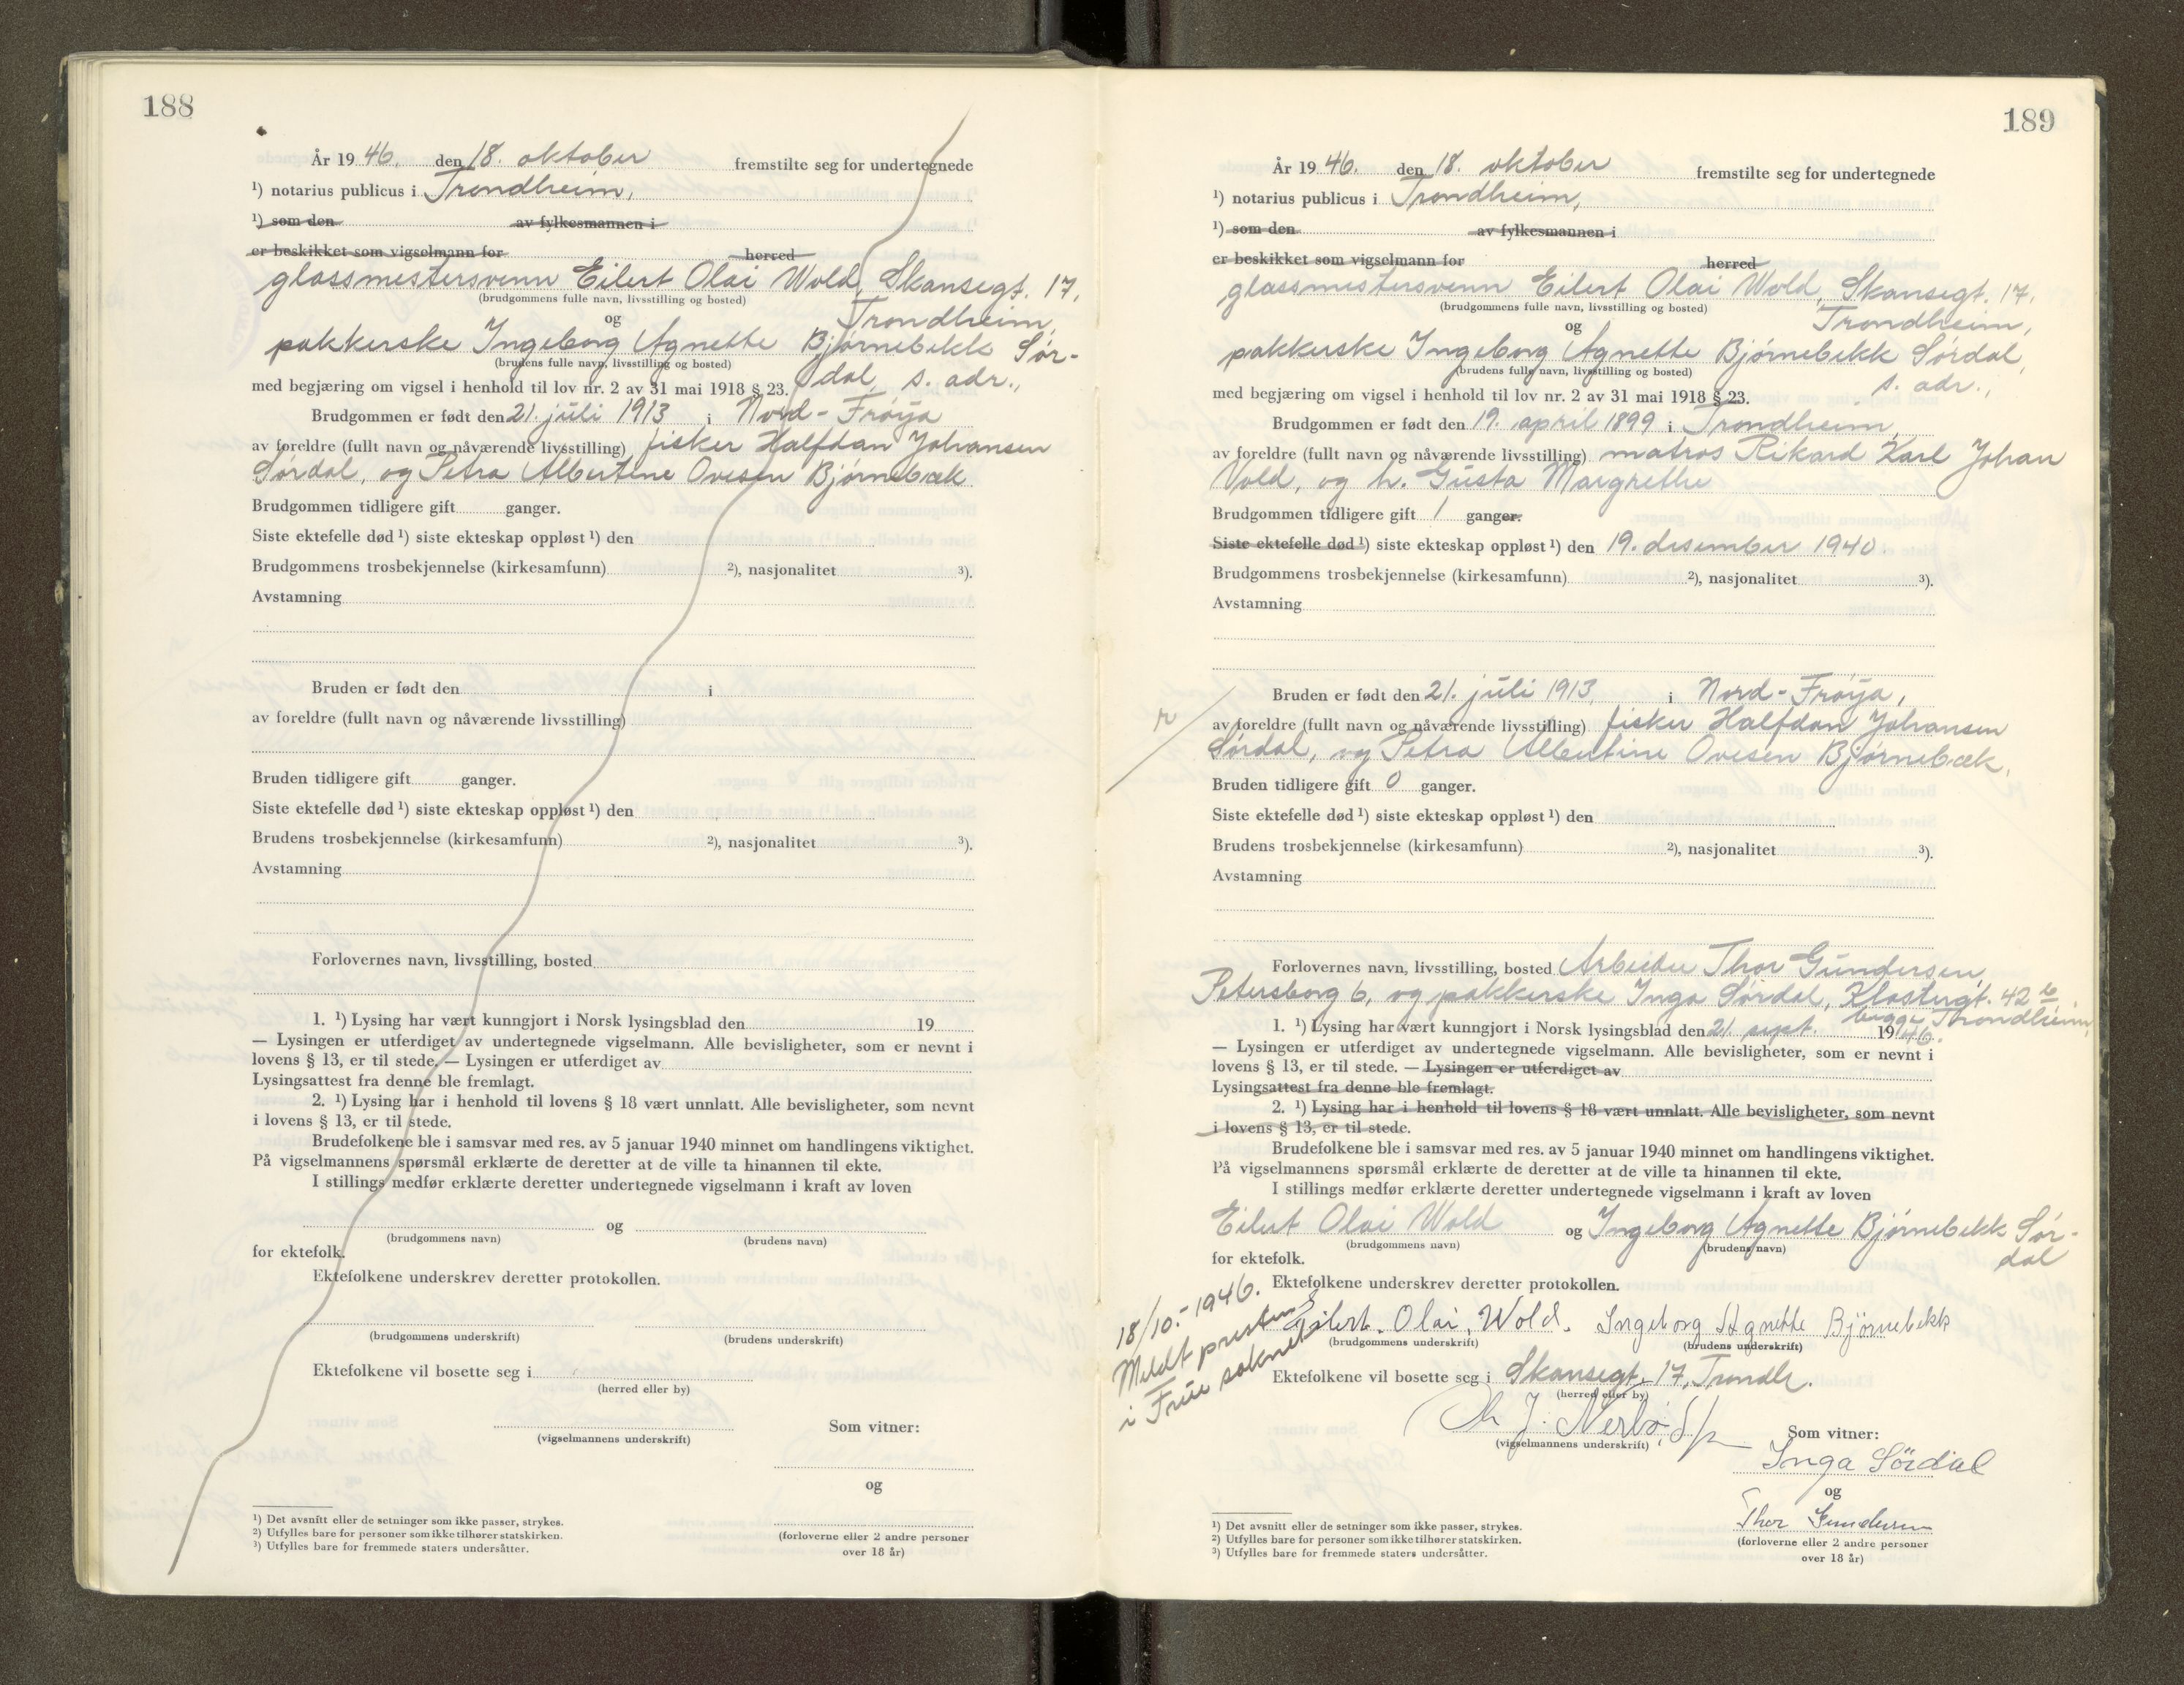 188
År 19 46. den 18. oktober fremstilte seg for undertegnede
¹) notarius publicus i Trondheim,
¹) som den av fylkesmannen i
er beskikket som vigselmann for herred
glassmestersvenn Eilert Olai Wold, Skansegt. 17,
(brudgommens fulle navn, livsstilling og bosted)
og Trondheim,
pakkerske Ingeborg Agnette Bjørnebekk Sør-
(brudens fulle navn, livsstilling og bosted)
dal, s. adr.,
med begjæring om vigsel i henhold til lov nr. 2 av 31 mai 1918 § 23.
Brudgommen er født den 21. juli 1913 i Nord-Frøya
av foreldre (fullt navn og nåværende livsstilling) fisker Halfdan Johansen
Sørdal, og Petra Albertine Ovesen Bjørnebæk
Brudgommen tidligere gift ganger.
Siste ektefelle død ¹) siste ekteskap oppløst ¹) den
Brudgommens trosbekjennelse (kirkesamfunn) ²), nasjonalitet ³).
Avstamning
Bruden er født den i
av foreldre (fullt navn og nåværende livsstilling)
Bruden tidligere gift ganger.
Siste ektefelle død ¹) siste ekteskap oppløst ¹) den
Brudens trosbekjennelse (kirkesamfunn) ²), nasjonalitet ³).
Avstamning
Forlovernes navn, livsstilling, bosted
1. ¹) Lysing har vært kunngjort i Norsk lysingsblad den 19
— Lysingen er utferdiget av undertegnede vigselmann. Alle bevisligheter, som er nevnt i
lovens § 13, er til stede. — Lysingen er utferdiget av
Lysingsattest fra denne ble fremlagt.
2. ¹) Lysing har i henhold til lovens § 18 vært unnlatt. Alle bevisligheter, som nevnt
i lovens § 13, er til stede.
Brudefolkene ble i samsvar med res. av 5 januar 1940 minnet om handlingens viktighet.
På vigselmannens spørsmål erklærte de deretter at de ville ta hinannen til ekte.
I stillings medfør erklærte deretter undertegnede vigselmann i kraft av loven
og
(brudgommens navn) (brudens navn)
for ektefolk.
Ektefolkene underskrev deretter protokollen.
(brudgommens underskrift) (brudens underskrift)
Ektefolkene vil bosette seg i
(herred eller by)
Som vitner:
(vigselmannens underskrift)
og
¹) Det avsnitt eller de setninger som ikke passer, strykes.
²) Utfylles bare for personer som ikke tilhører statskirken.
³) Utfylles bare for fremmede staters undersåtter.
(forloverne eller 2 andre personer
over 18 år)
189
År 19 46. den 18. oktober fremstilte seg for undertegnede
¹) notarius publicus i Trondheim,
¹) som den av fylkesmannen i
er beskikket som vigselmann for herred
glassmestersvenn Eilert Olai Wold, Skansegt. 17,
(brudgommens fulle navn, livsstilling og bosted)
og Trondheim,
pakkerske Ingeborg Agnette Bjørnebekk Sørdal,
(brudens fulle navn, livsstilling og bosted)
s. adr.,
med begjæring om vigsel i henhold til lov nr. 2 av 31 mai 1918 § 23.
Brudgommen er født den 19. april 1899 i Trondheim,
av foreldre (fullt navn og nåværende livsstilling) matros Rikard Karl Johan
Vold, og h. Gusta Margrethe
Brudgommen tidligere gift 1 ganger.
Siste ektefelle død ¹) siste ekteskap oppløst ¹) den 19. desember 1940.
Brudgommens trosbekjennelse (kirkesamfunn) ²), nasjonalitet ³).
Avstamning
Bruden er født den 21. juli 1913, i Nord-Frøya,
av foreldre (fullt navn og nåværende livsstilling) fisker Halfdan Johansen
Sørdal, og Petra Albertine Ovesen Bjørnebæk,
Bruden tidligere gift 0 ganger.
Siste ektefelle død ¹) siste ekteskap oppløst ¹) den
Brudens trosbekjennelse (kirkesamfunn) ²), nasjonalitet ³).
Avstamning
Forlovernes navn, livsstilling, bosted Arbeider Thor Gundersen,
Petersborg 6, og pakkerske Inga Sørdal, Klostergt. 42 b
begge Trondheim,
1. ¹) Lysing har vært kunngjort i Norsk lysingsblad den 21 sept. 19 46.
— Lysingen er utferdiget av undertegnede vigselmann. Alle bevisligheter, som er nevnt i
lovens § 13, er til stede. — Lysingen er utferdiget av
Lysingsattest fra denne ble fremlagt.
2. ¹) Lysing har i henhold til lovens § 18 vært unnlatt. Alle bevisligheter, som nevnt
i lovens § 13, er til stede.
Brudefolkene ble i samsvar med res. av 5 januar 1940 minnet om handlingens viktighet.
På vigselmannens spørsmål erklærte de deretter at de ville ta hinannen til ekte.
I stillings medfør erklærte deretter undertegnede vigselmann i kraft av loven
Eilert Olai Wold og Ingeborg Agnette Bjørnebekk Sør-
(brudgommens navn) (brudens navn)
dal
for ektefolk.
Ektefolkene underskrev deretter protokollen.
18/10.-1946.
Meldt presten
i Frue soknet
Eilert. Olai, Wold. Ingeborg Agnette Bjørnebekk
(brudgommens underskrift) (brudens underskrift)
Ektefolkene vil bosette seg i Skansegt. 17, Trondh.
(herred eller by)
J. Nerbø,
(vigselmannens underskrift)
Som vitner:
Inga Sördal
og
Thor Gundersen
¹) Det avsnitt eller de setninger som ikke passer, strykes.
²) Utfylles bare for personer som ikke tilhører statskirken.
³) Utfylles bare for fremmede staters undersåtter.
(forloverne eller 2 andre personer
over 18 år)